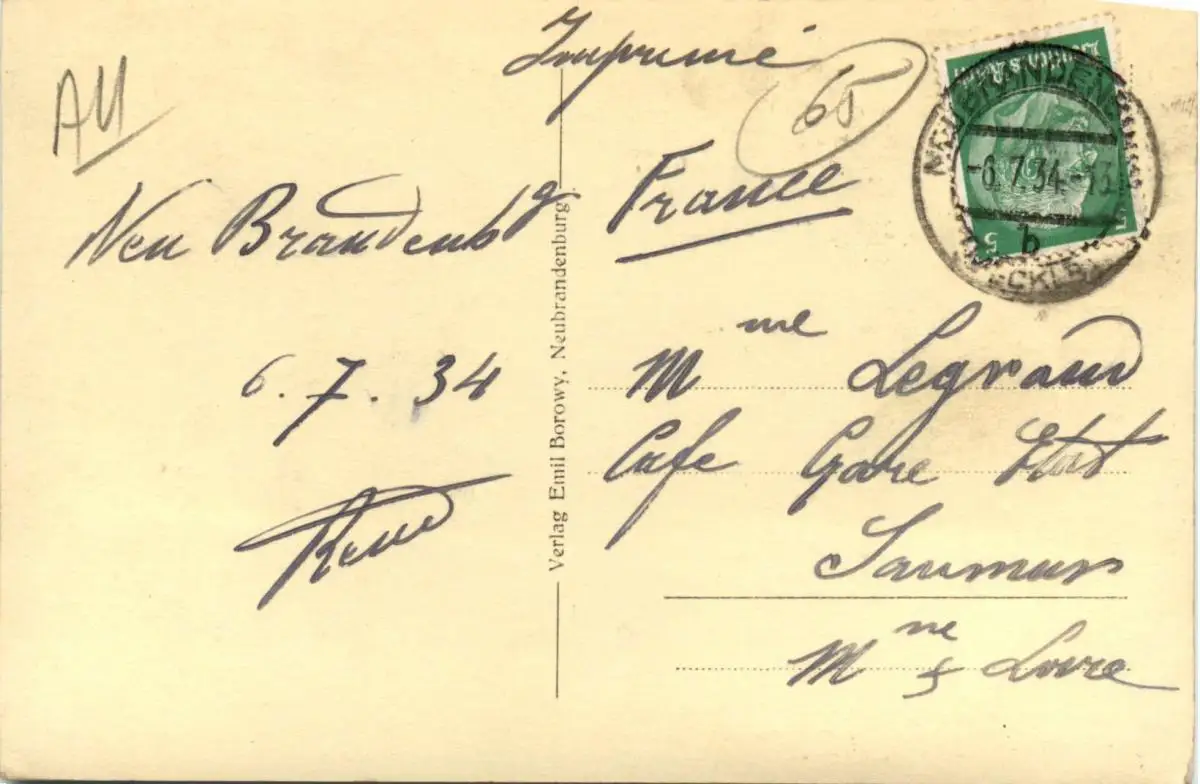 Imprimé
AU
65
Neu Brandenbg
6.7.34
René
Verlag Emil Borowy, Neubrandenburg
France
NEUBRANDENBURG
-6.7.34.-13
b
(MECKLB)
5
5
Mme Legrand
Café Gare Etat
Saumur
Mne & Loire